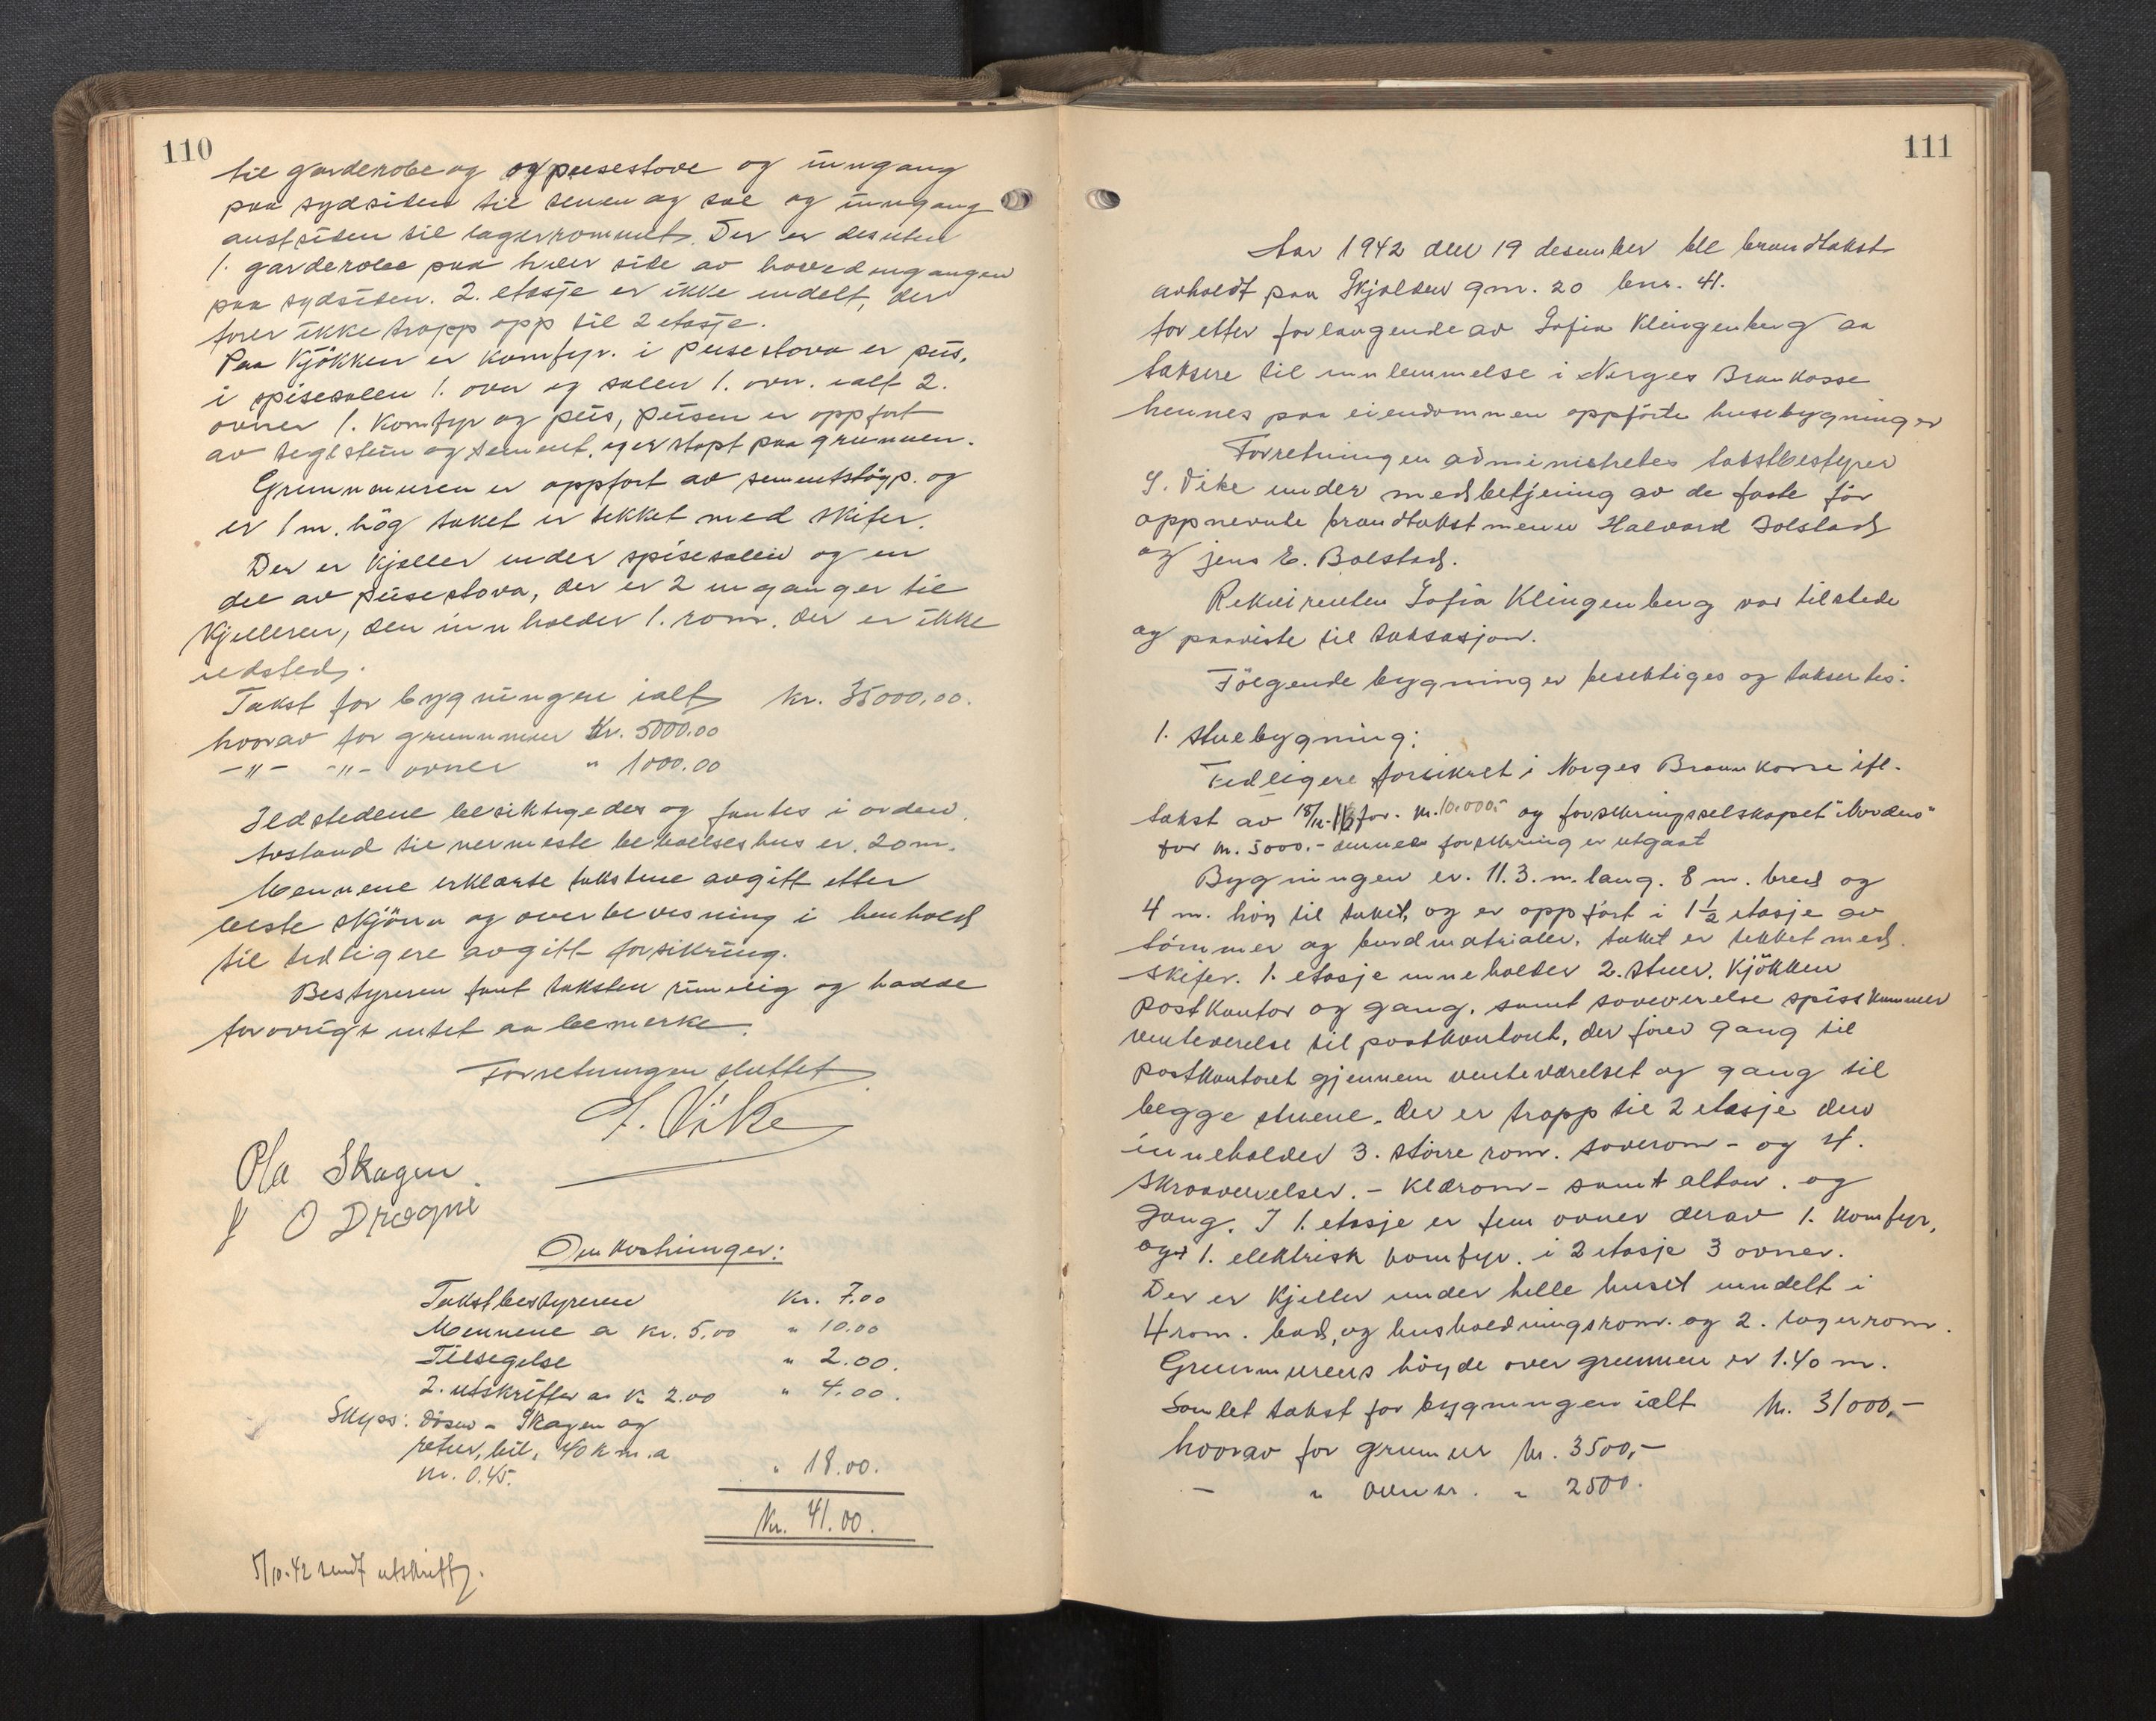 110
til garderobe og og peisestove og inngang
paa sydsiden til scenen og sal og inngang
austsiden til lagerrommet. Der er desuten
1. garderobe paa hver side av hovedingangen
paa sydsiden. 2. etasje er ikke indelt, der
förer ikke trapp opp til 2 etasje.
Paa Kjökken er komfyr. i Peisestova er peis,
i spisesalen 1. ovn og salen 1. ovn. ialt 2.
ovner 1. Komfyr og peis, peisen er oppfört
av teglstein og sement, og er stöpt paa grunnen.
Grunnmuren er oppfört av sementstöyp. og
er 1 m. hög taket er tekket med skifer.
Der er Kjeller under spisesalen og en
del av peisestova, der er 2 innganger til
Kjelleren, den innholder 1. rom. der er ikke
ildsted.
Takst for bygningen ialt kr. 35000,00.
hvorav for grunnmur Kr. 5000.00
-"- -"- ovner " 1000.00
Ildstedene besiktigedes og fantes i orden.
Avstand til nermeste beboelseshus er. 20 m.
Mennene erklærte takstene avgitt efter
beste skjönn og overbevisning i henhold
til tidligere avgitt forsikring.
Bestyreren fant taksten rimelig og hadde
forövrigt intet aa bemerke.
Forretningen sluttet
S. Vike
Ola Skagen
J O Drægni
Omkostninger:
Takstbestyreren Kr. 7.00
Mennene a kr. 5.00 " 10.00
Tilsigelse " 2.00.
2. utskrifter a K 2.00 " 4.00.
Skyss: Döse - Skagen og
retur, bil, 40 km. a
kr. 0.45. " 18.00.
Kr. 41.00.
5/10-42 sendt utskrift.
111
Aar 1942 den 19 desember ble brandtakst
avholdt paa Skjolden gnr. 20 bnr. 41.
for etter forlangende av Sofia Klingenberg aa
taksere til innlemmelse i Norges Brankasse
hennes paa eiendommen oppförte husebygninger
Forretningen administretes takstbestyrer
S. Vike under medbetjening av de faste för
oppnevnte brandtakstmenn Halvard Bolstad
og jens E. Bolstad.
Rekvirenten Sofia Klingenberg var tilstede
og paaviste til taksasjon.
Fölgende bygninger besiktiges og taksertes.
1. stuebygning:
Tidligere forsikret i Norges Brannkasse ifl.
takst av 18/11-16 for. kr. 10.000.- og forsikringsselskapet "Norden"
for kr. 5000.- denne forsikring er utgaat
Bygningen er. 11.3. m. lang. 8 m. bred og
4 m. höy til taket, og er oppfört i 1 1/2 etasje av
tömmer og bordmatrialer. taket er tekket med.
skifer. 1. etasje inneholder 2. stuer. Kjökken
postkontor og gang, samt soveverelse spisskammer
venteverelse til postkontoret, der förer gang til
postkontoret gjennem venteværelset og gang til
begge stuene. der er trapp til 2 etasje den
inneholder 3. större rom. soverom - og 4.
skraaverelser. - Klærom - samt altan. og
gang. I 1. etasje er fem ovner derav 1. komfyr,
og 1. elektrisk komfyr. i 2 etasje 3 ovner.
Der er Kjeller under helle huset inndelt i
4 rom. bad, og husholdningsrom. og 2. lagerrom.
Grunnmurens höyde over grunnen er 1.40 m.
Samlet takst for bygningen ialt kr. 31000,-
hvorav for grunmur kr. 3500,-
- " ovner. " 2500.